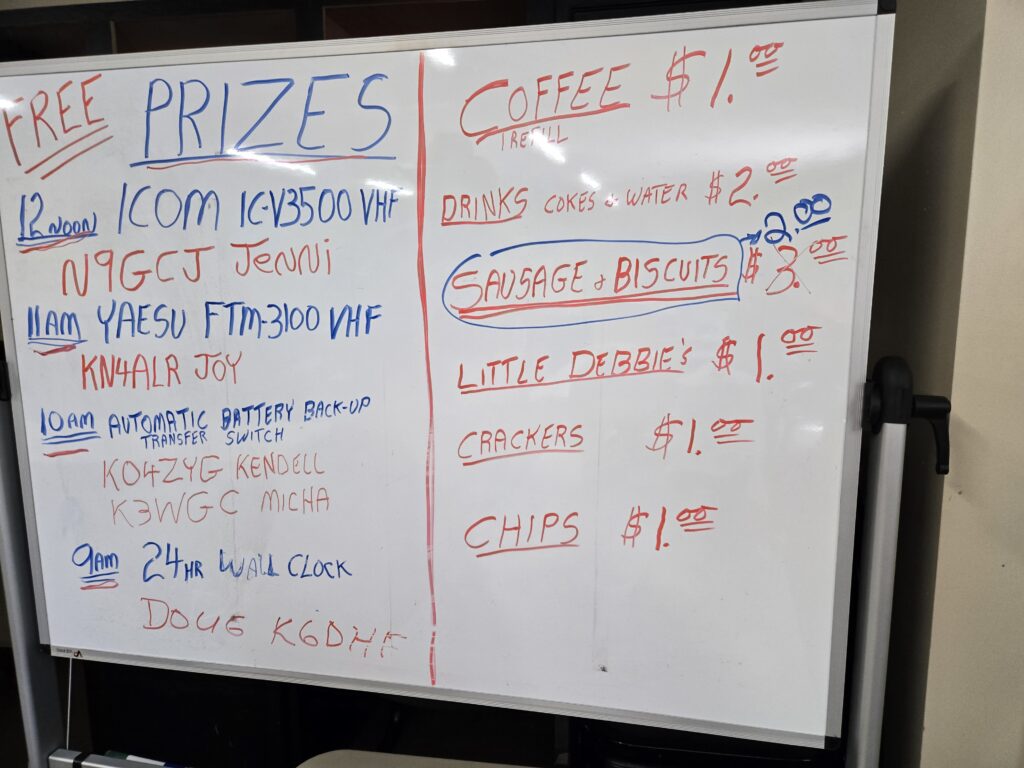 FREE PRIZES
12 NOON ICOM IC-V3500 VHF
N9GCJ Jenni
11AM YAESU FTM-3100 VHF
KN4ALR JOY
10AM AUTOMATIC BATTERY BACK-UP
TRANSFER SWITCH
KO4ZYG KENDELL
K3WGC MICHA
9AM 24HR WALL CLOCK
DOUG K6DHF
COFFEE $1.00
1 REFILL
DRINKS COKES & WATER $2.00
2.00
SAUSAGE & BISCUITS $3.00
LITTLE DEBBIE'S $1.00
CRACKERS $1.00
CHIPS $1.00